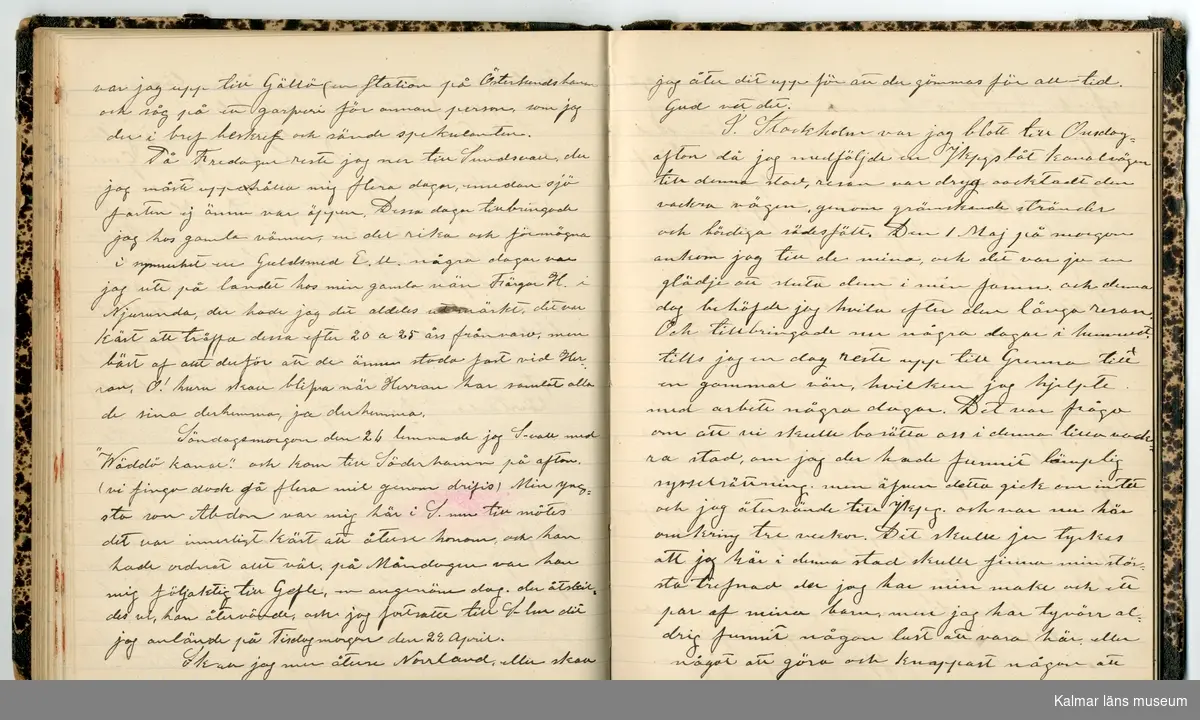 var jag upp till Gällö (en station på Östersundsbanan
och såg på ett garfveri för annan person, som jag
der i bref beskref och sände spekulanten.
På Fredagen reste jag ner till Sundsvall, der
jag måste uppehålla mig flera dagar, emedan sjö
farten ej ännu var öppen. Dessa dagar tillbringade
jag hos gamla vänner, en del rika och förmögna
i synnerhet en Guldsmed E. U. några dagar var
jag ute på landet hos min gamla vän Färgar H. i
Njurunda, der hade jag det aldeles utmärkt, det var
kärt att träffa dessa efter 20 a 25 års frånvaro, men
bäst af allt derför att de ännu stodo fast vid Her-
ran, O! huru skall blifva när Herran har samlat alla
de sina derhemma, ja derhemma.
Söndagsmorgon den 26 lemnade jag S-vall med
"Wäddö kanal" och kom till Söderhamn på afton.
(vi fingo dock gå flera mil genom drifis) Min yng-
sta son Abdon var mig här i S. mn till mötes
det var innerligt kärt att återse honom, och han
hade ordnat allt väl, på Måndagen var han
mig följaktig till Gefle, en angenäm dag. der åtskil-
des vi, han återvände, och jag fortsatte till S-lm dit
jag anlände på tisdagmorgon den 28 April.
Skall jag mer återse Norrland, eller skall
jag åter dit upp för att der gömmas för all tid.
Gud vet det.
I Stockholm var jag blott till Onsdag-
afton då jag medföljde en Jkpgsbåt kanalvägen
till denna stad, resan var dryg oacktadt den
vackra vägen, genom grönskande stränder
och bördiga sädesfält. Den 1 Maj på morgon
ankom jag till de mina, och det var ju en
glädje att sluta dem i min famn. och denna
dag behöfde jag hvila efter den långa resan.
Och tillbringade nu några dagar i hemmet.
tills jag en dag reste upp till Grenna till
en gammal vän, hvilken jag hjelpte
med arbete några dagar. Det var fråga
om att vi skulle bosätta oss i denna lilla vack-
ra stad, om jag der hade funnit lämplig
sysselsättning. men äfven detta gick om intet
och jag återvände till Jkpg. och var nu här
omkring tre veckor. Det skulle ju tyckas
att jag här i denna stad skulle finna min stör-
sta trefnad der jag har min maka och ett
par af mina barn, men jag har tyvärr al-
drig funnit någon lust att vara här, eller
något att göra och knappast någon att
Kalmar läns museum